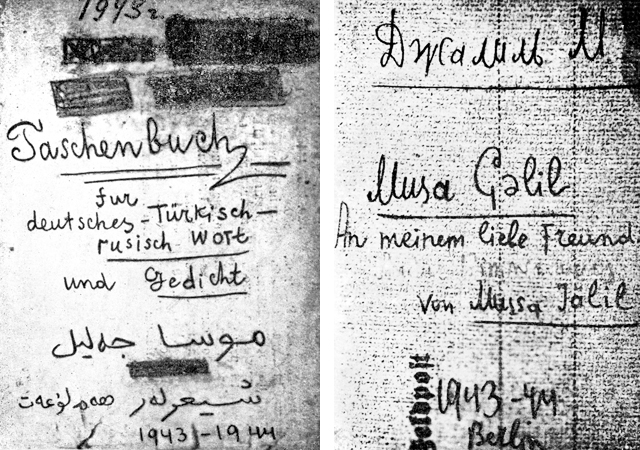 1943г.
Taschenbuch
fur
deutsches-Türkisch-
rusisch Wort
und Gedicht
موسا جەلیل
شیعرلەر هەم لوغەت
1943-1944
Джалиль М
Musa Gəlil
An meinem liebe Freund
von Mussa Jalil
Feldpost
1943-44
Berlin